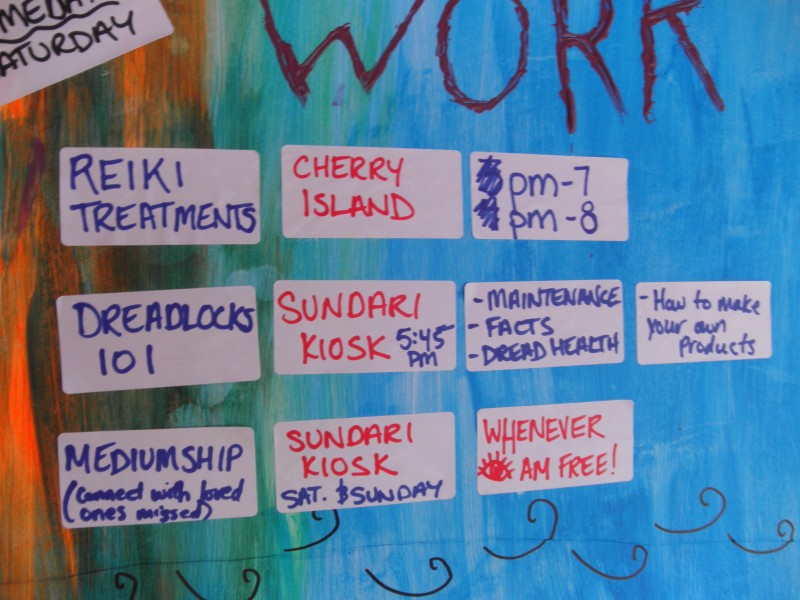 ATURDAY
WORK
REIKI
TREATMENTS
CHERRY
ISLAND
pm-7
pm-8
DREADLOCKS
101
SUNDARI
KIOSK 5:45
PM
- MAINTENANCE
- FACTS
- DREAD HEALTH
- How to make
your own
Products
MEDIUMSHIP
(connect with loved
ones missed)
SUNDARI
KIOSK
SAT. & SUNDAY
WHENEVER
AM FREE!